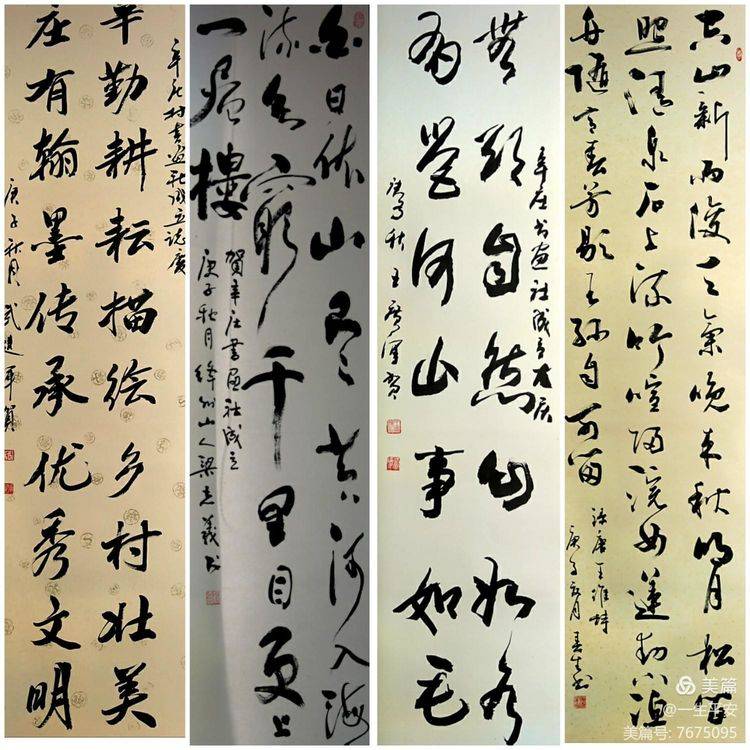 辛勤耕耘描绘乡村壮美
庄有翰墨传承优秀文明
辛庄村书画社成立志庆
庚子秋月 武进军贺
白日依山尽黄河入海
流欲穷千里目更上
一层樓
賀辛庄書画社成立
庚子秋月绛州山人梁志義书
自然如水
河山事如毛
辛庄书画社成立大庆
庚子秋王贺
空山新雨后天气晚来秋明月松间
照清泉石上流竹喧归浣女莲动下渔
舟随意春芳歇王孙自可留
录唐王维诗
庚子秋月书
美篇
@一生平安
美篇号: 7675095